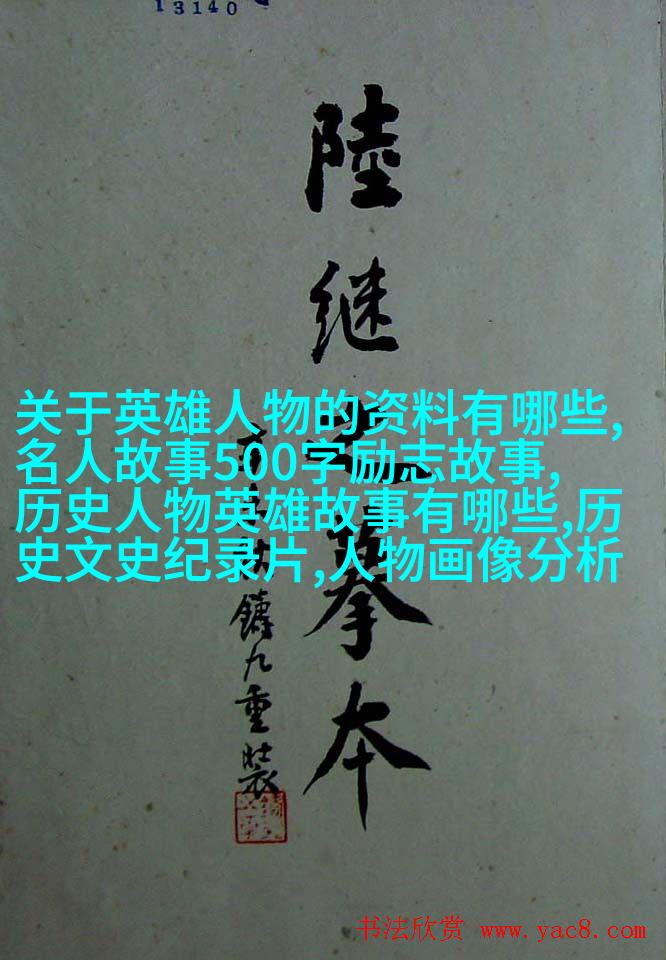 13140
陸继摹本
鑄九重裝
关于英雄人物的资料有哪些,
名人故事500字励志故事,
历史人物英雄故事有哪些,历
史文史纪录片,人物画像分析
书法欣赏 www.yac8.com